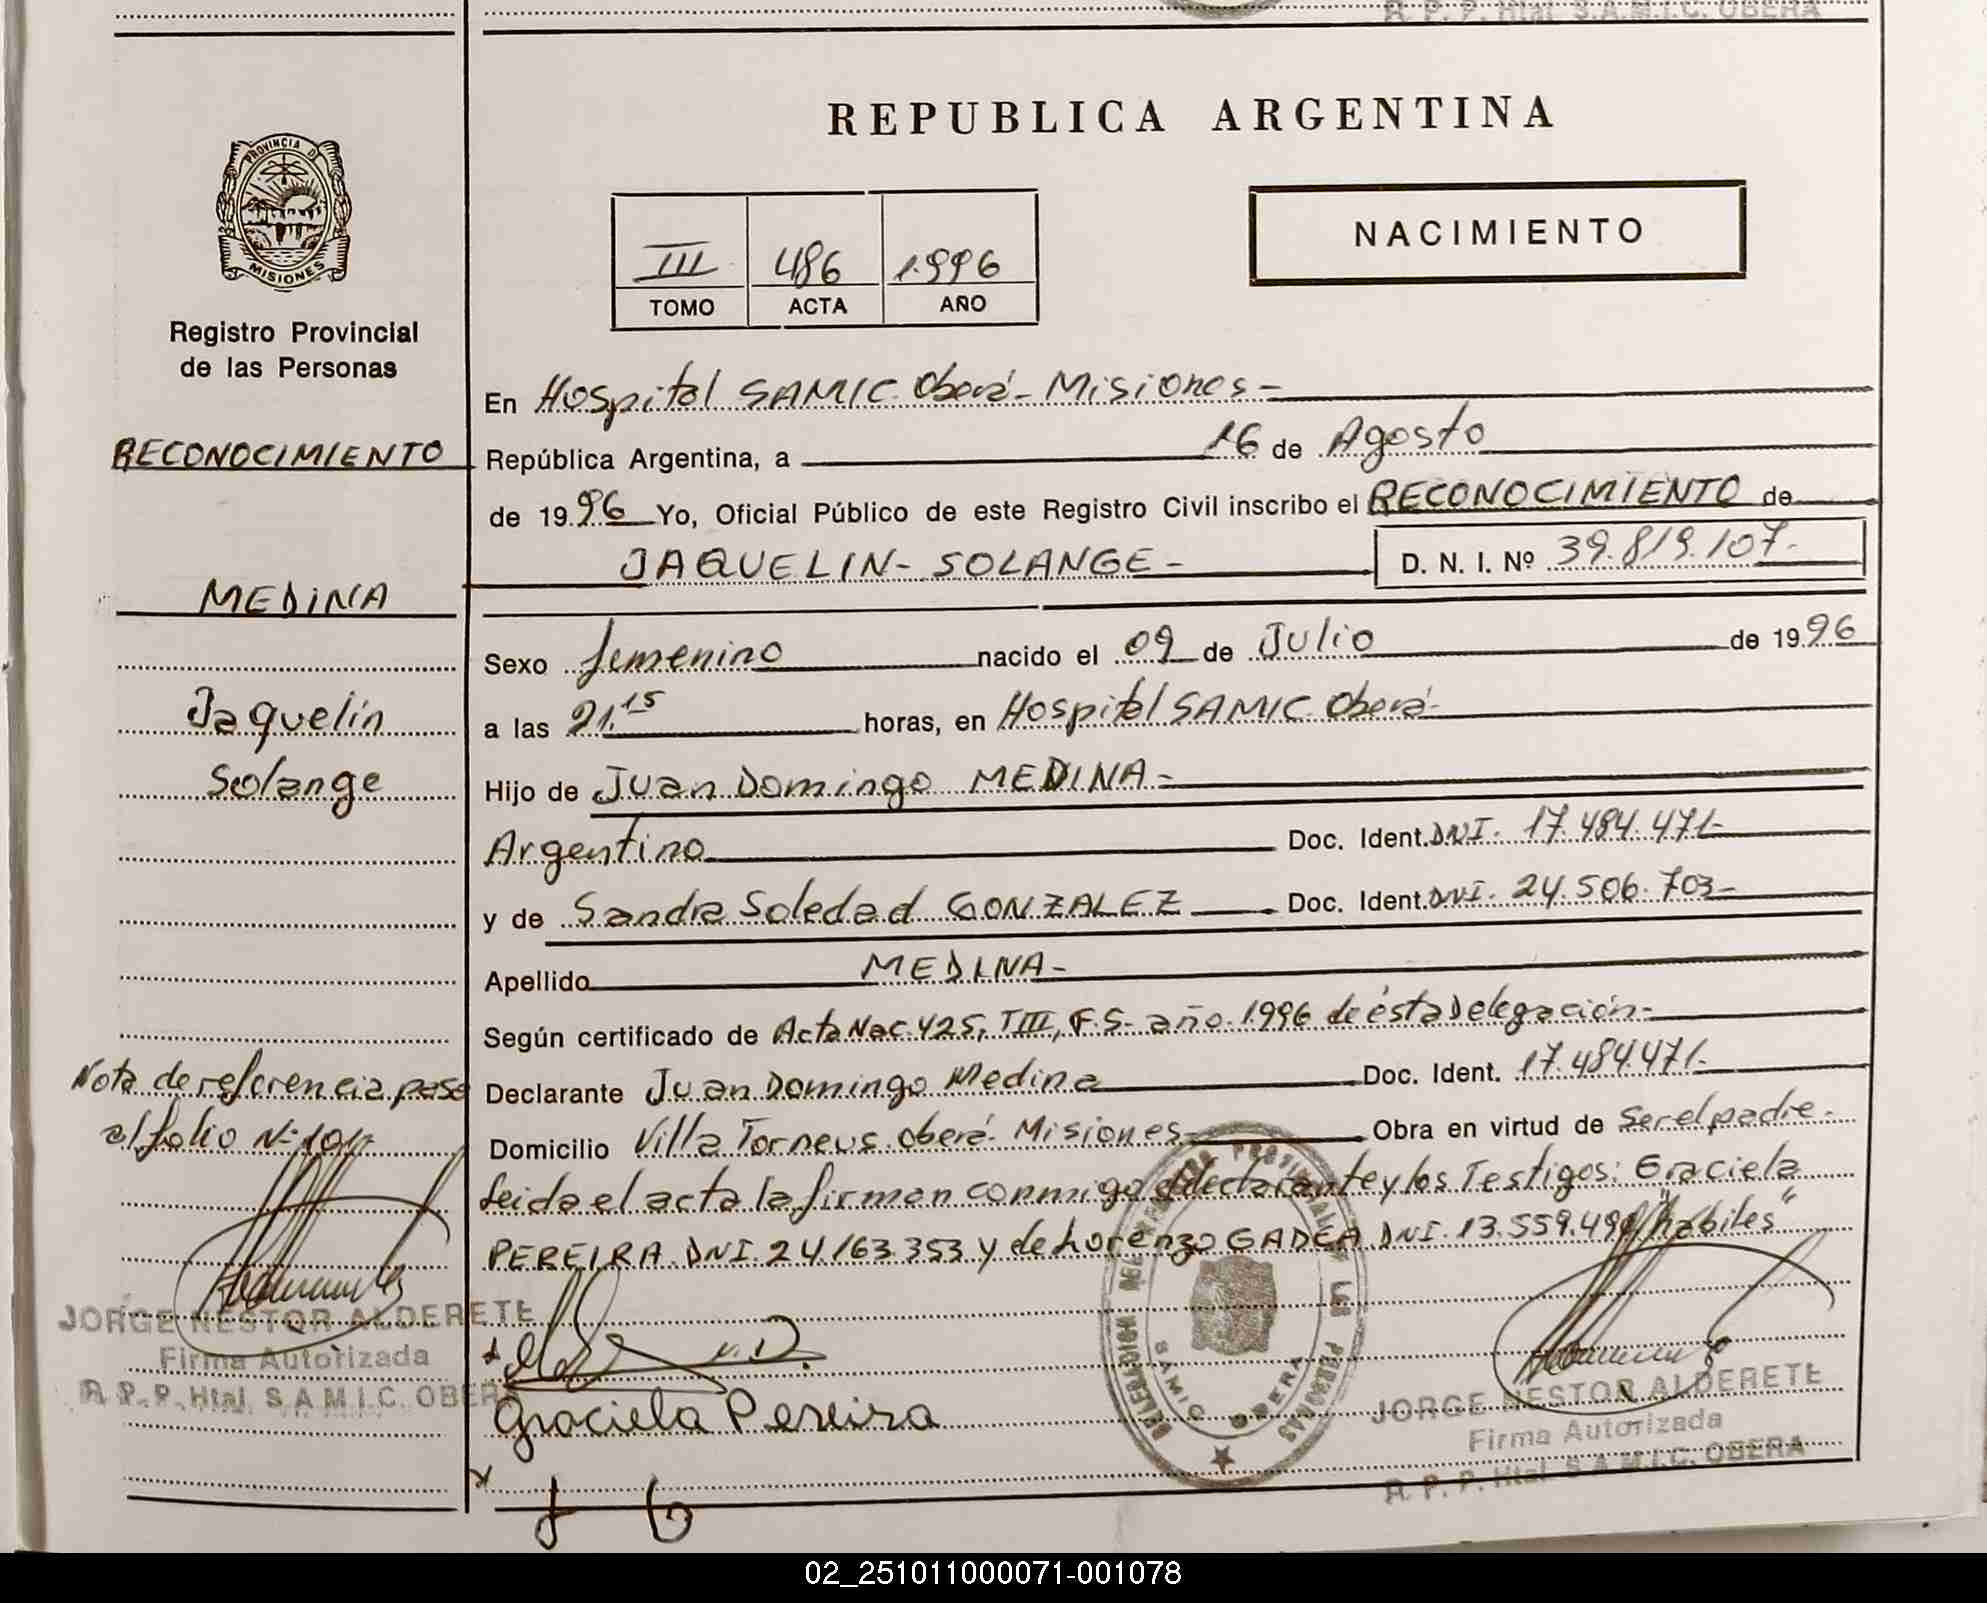 R. P. P. Htal. S.A.M.I.C. OBERA
PROVINCIA DE
MISIONES
Registro Provincial
de las Personas
RECONOCIMIENTO
MEDINA
Jaquelin
Solange
Nota de referencia pasa
al folio Nº 101-
JORGE NESTOR ALDERETE
Firma Autorizada
R. P. P. Htal. S.A.M.I.C. OBERA
REPUBLICA ARGENTINA
NACIMIENTO
III 486 1.996
TOMO ACTA AÑO
En Hospital SAMIC. Oberá - Misiones -
República Argentina, a 16 de Agosto
de 19.96 Yo, Oficial Público de este Registro Civil inscribo el RECONOCIMIENTO de
JAQUELIN - SOLANGE - D. N. I. Nº 39.819.107.-
Sexo femenino nacido el 09 de Julio de 19.96
a las 21.15 horas, en Hospital SAMIC. Oberá-
Hijo de Juan Domingo MEDINA -
Argentino Doc. Ident. DNI. 17.484.471-
y de Sandra Soledad GONZALEZ Doc. Ident. DNI. 24.506.703-
Apellido MEDINA -
Según certificado de Acta Nac. 425, TIII, F.S- año 1996 de ésta Delegación-
Declarante Juan Domingo Medina Doc. Ident. 17.484.471-
Domicilio Villa Torneus. Oberá- Misiones Obra en virtud de Ser el padre -
Leida el acta la firman conmigo declarante y los Testigos: Graciela
PEREIRA. DNI. 24.163.353 y de Lorenzo GADEA DNI. 13.559.499 "habiles"
Graciela Pereira
DELEGACION REGISTRO PROVINCIAL DE LAS PERSONAS
SAMIC OBERA
JORGE NESTOR ALDERETE
Firma Autorizada
R. P. P. Htal. S.A.M.I.C. OBERA
02_251011000071-001078